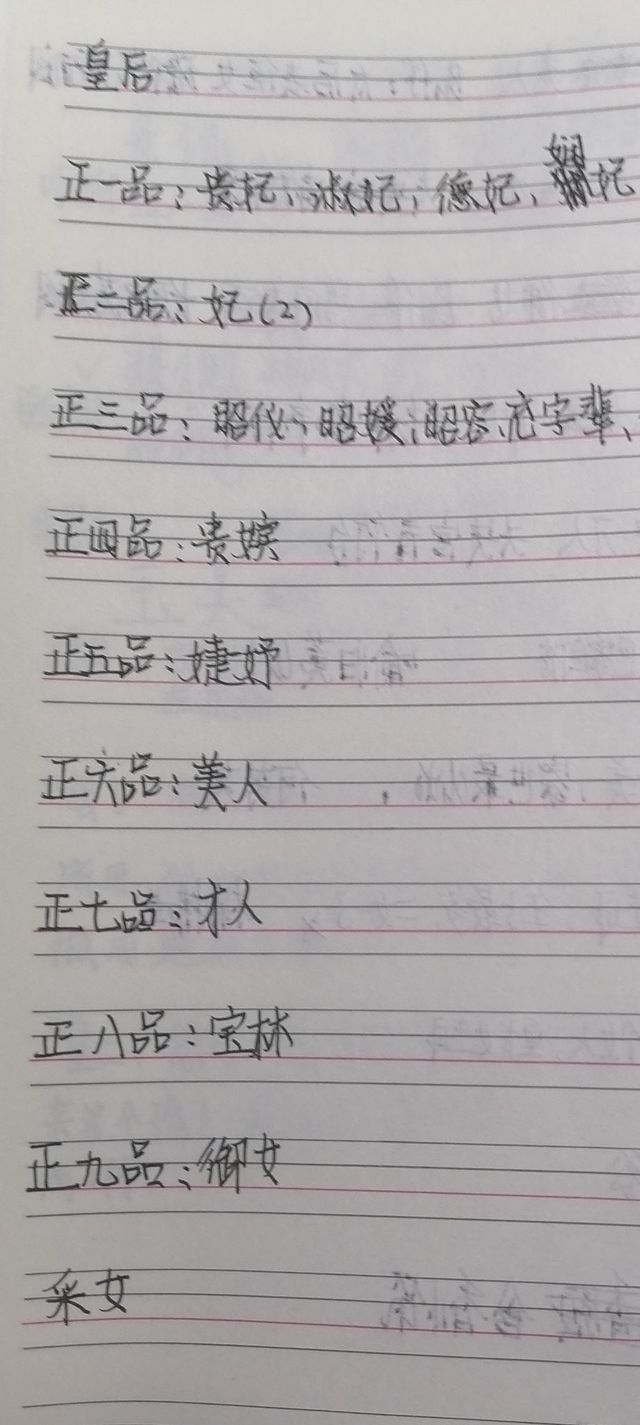 皇后
正一品：贵妃、淑妃、德妃、娴妃
正二品：妃（2）
正三品：昭仪、昭媛、昭容、充字辈、
正四品：贵嫔
正五品：婕妤
正六品：美人
正七品：才人
正八品：宝林
正九品：御女
采女